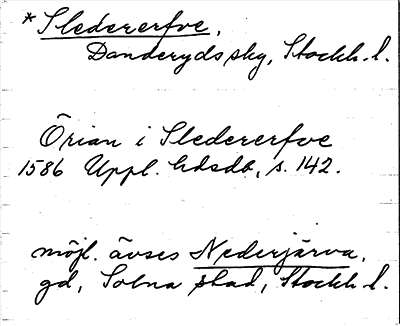 *Sledererfve,
Danderyds sky, Stockh. l.
Örian i Sledererfve
1586 Uppl. hdsdb, s. 142.
möjl. avses Nederjärva,
gd, Solna stad, Stockh. l.